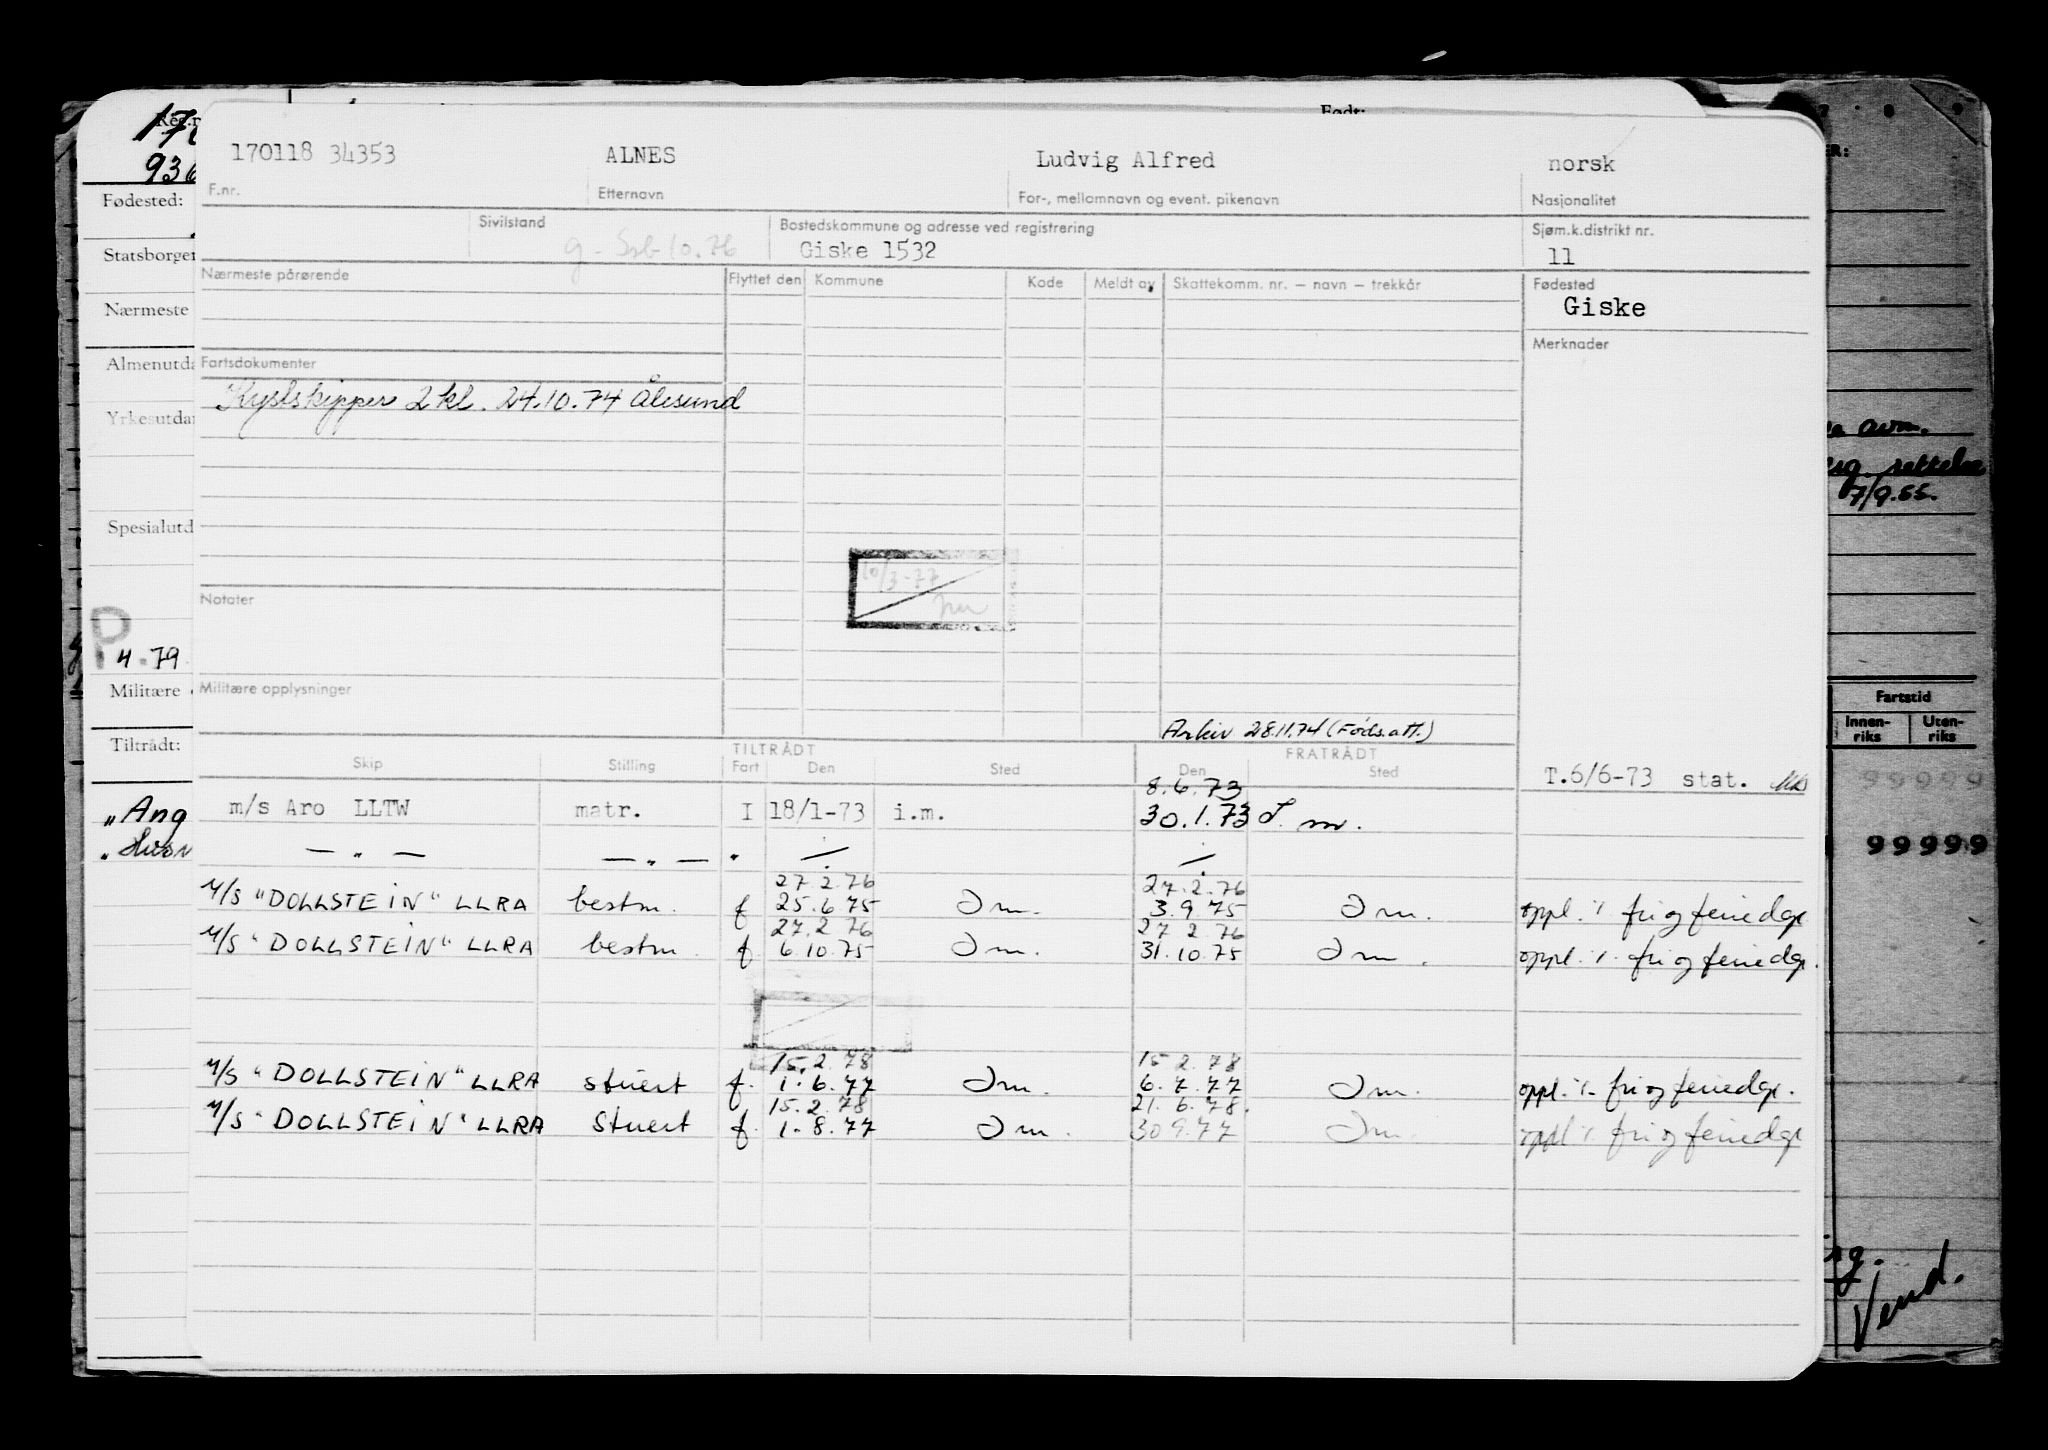 Født:
170118 34353 ALNES Ludvig Alfred norsk
F.nr. Etternavn For-, mellomnavn og event. pikenavn Nasjonalitet
936
Fødested:
Sivilstand Bostedskommune og adresse ved registrering Sjøm.k.distrikt nr.
Giske 1532 11
Nærmeste pårørende Flyttet den Kommune Kode Meldt av Skattekomm. nr. — navn — trekkår Fødested
Giske
Nærmeste
Merknader
Fartsdokumenter
Kystskipper 2 kl. 24.10.74 Ålesund
avm.
rettelse
7/9.55.
10/3-77
Notater
P
4.79
Militære Militære opplysninger
Fartstid
Innen-riks Uten-riks
Arkiv 28.11.74 (Føds.att.)
Tiltrådt: TILTRÅDT FRATRÅDT
Skip Stilling Fart Den Sted Den Sted
T.6/6-73 stat.
99999
8.6.73
„Ang m/s Aro LLTW matr. I 18/1-73 i.m. 30.1.73
— „ — — „ — „
99999
27.2.76 27.2.76
M/S "DOLLSTEIN" LLRA bestm. f 25.6.75 Im. 3.9.75 Im. oppl. % fri og feriedgr
27.2 76 27 2.76
M/S "DOLLSTEIN" LLRA bestm. f. 6.10.75 Im. 31.10.75 Im. oppl. %. fri og feriedgr.
15.2.78 15 2.78
M/S "DOLLSTEIN" LLRA stuert f. 1.6.77 Im. 6.7.77 Im. oppl. %. fri og feriedgr.
15.2.78 21.6.78.
M/S "DOLLSTEIN" LLRA Stuert f. 1.8.77 Im. 30 9.77 Im. oppl %. fri og feriedgr
Vend.